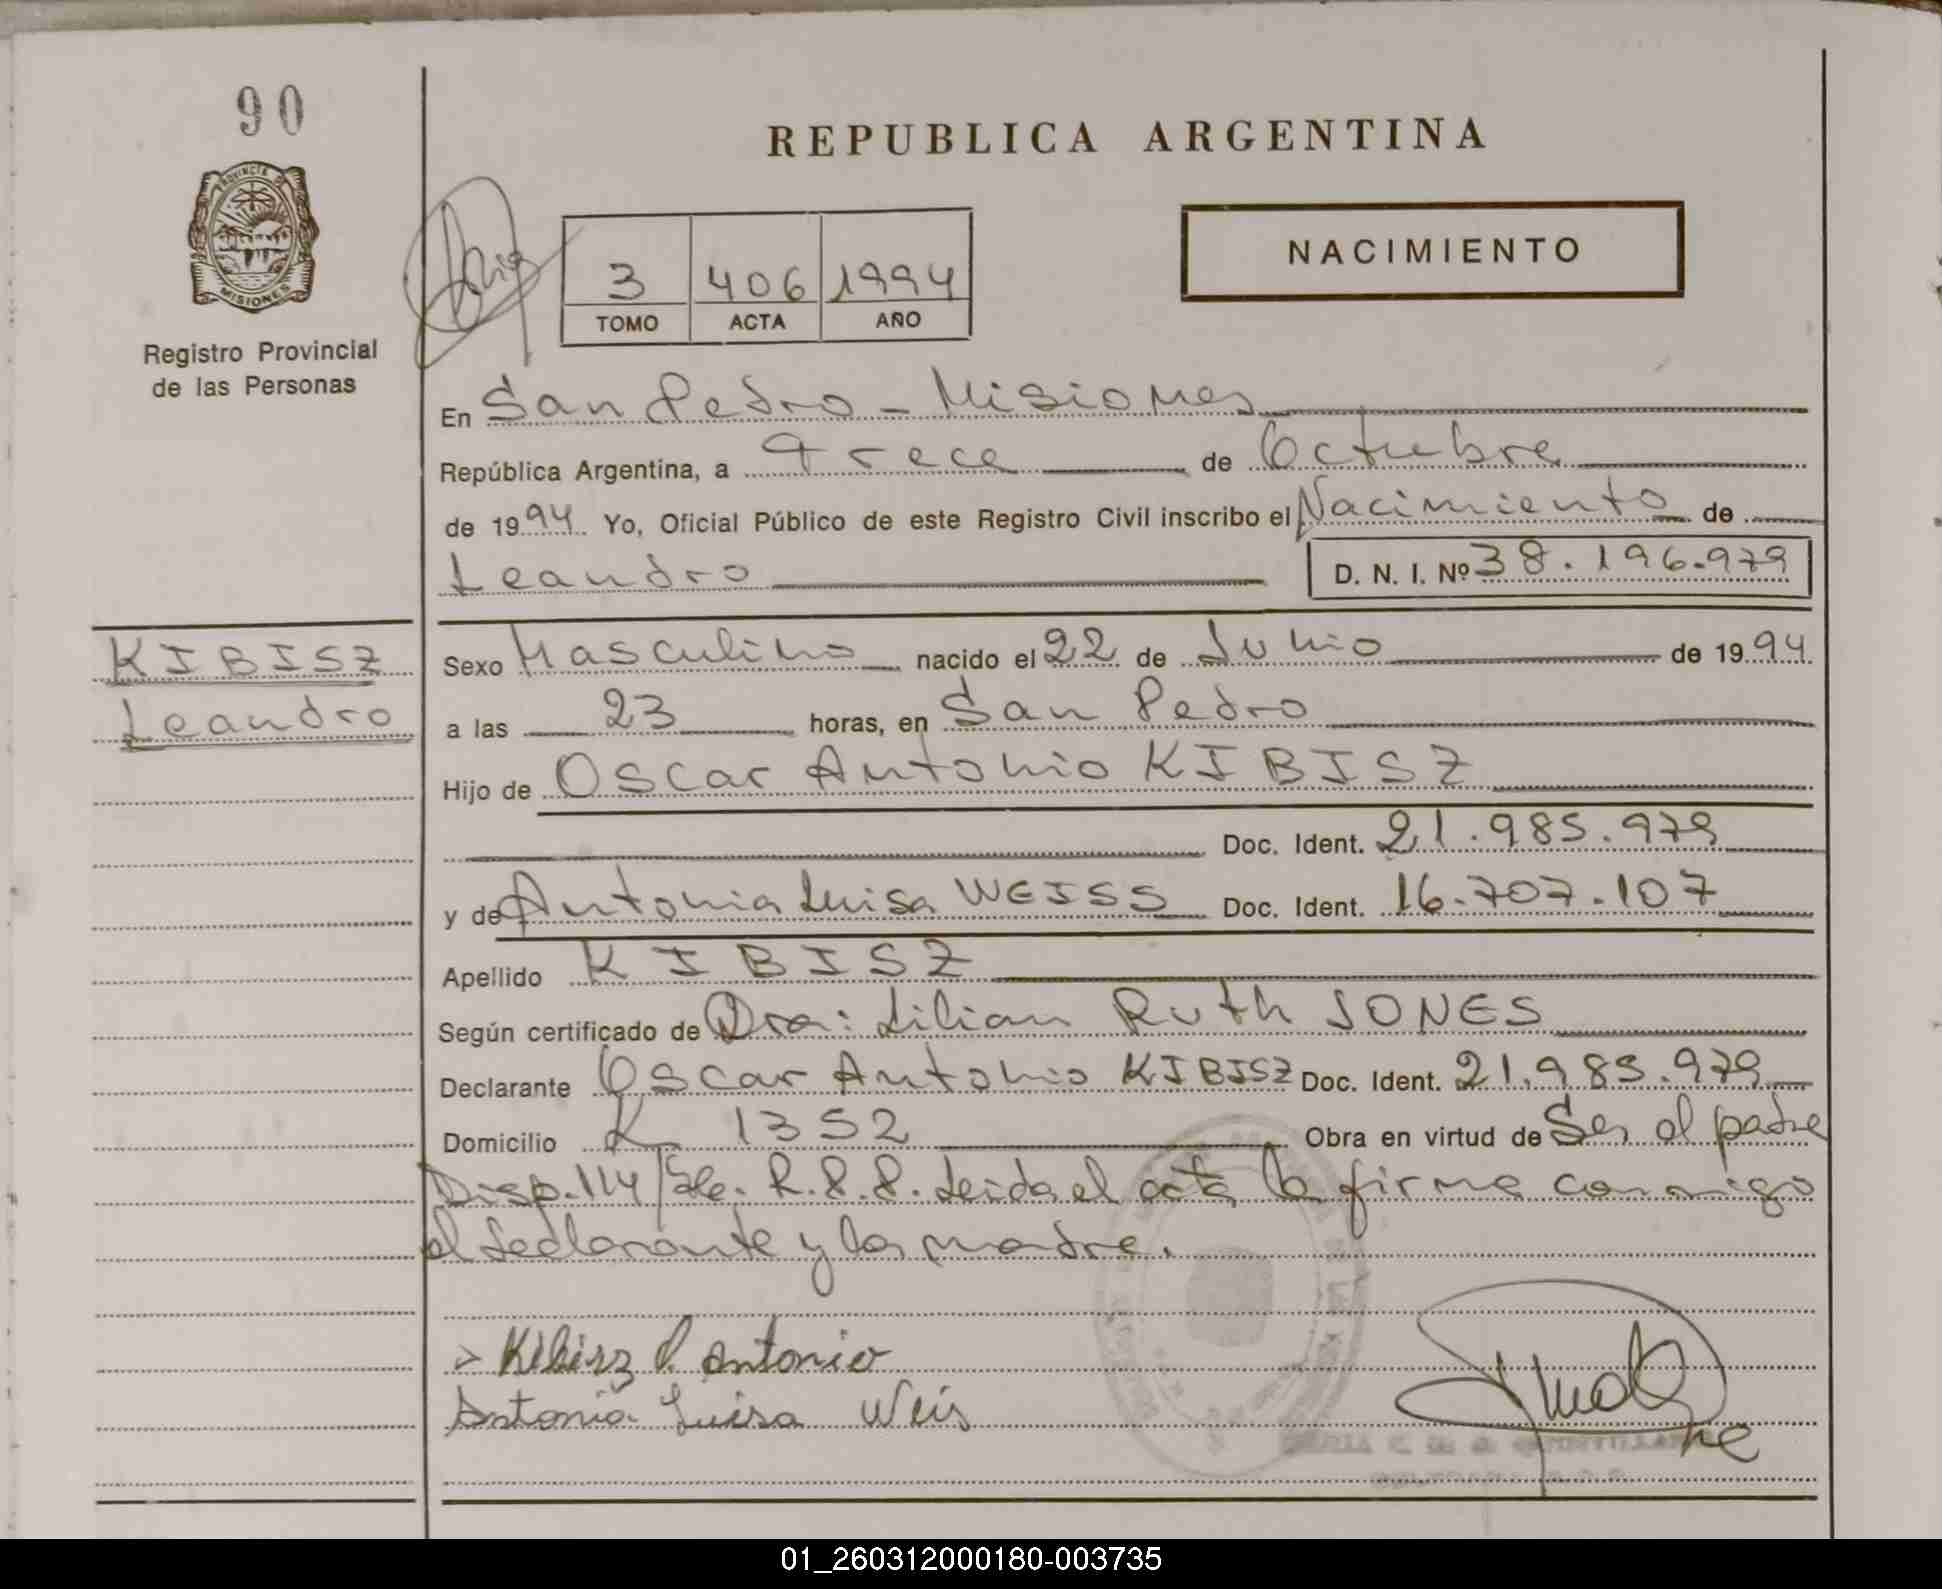 90
REPUBLICA ARGENTINA
PROVINCIA DE
MISIONES
Registro Provincial
de las Personas
3 406 1994
TOMO ACTA AÑO
NACIMIENTO
En San Pedro - Misiones
República Argentina, a Trece de Octubre
de 1994 Yo, Oficial Público de este Registro Civil inscribo el Nacimiento de
Leandro D. N. I. Nº 38.196.979
KIBISZ
Leandro
Sexo Masculino nacido el 22 de Junio de 1994
a las 23 horas, en San Pedro
Hijo de Oscar Antonio KIBISZ
Doc. Ident. 21.985.979
y de Antonia Luisa WEISS Doc. Ident. 16.707.107
Apellido KIBISZ
Según certificado de Dra: Lilian Ruth JONES
Declarante Oscar Antonio KIBISZ Doc. Ident. 21.985.979
Domicilio K 1352 Obra en virtud de Ser el padre
Disp. 114/ R.P.P. Leida el acta la firma conmigo
el declarante y la madre.
Kibisz O. Antonio
Antonia Luisa Weis
01_260312000180-003735